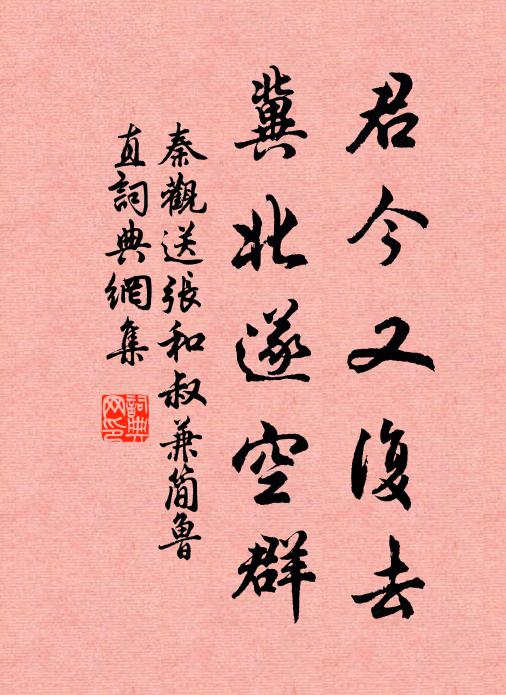 君今又復去
冀北遂空群
秦觀送張和叔兼簡魯
直詞典網集
詞典网印